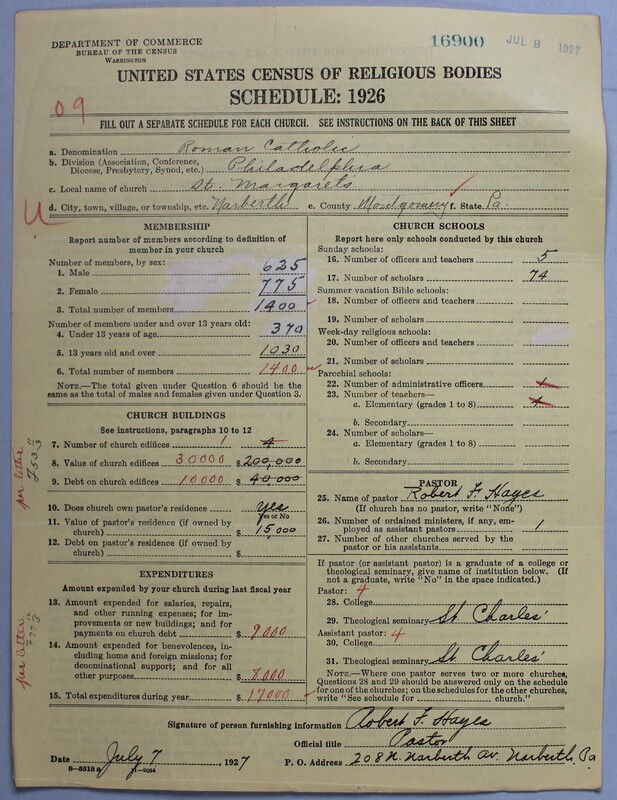 DEPARTMENT OF COMMERCE
BUREAU OF THE CENSUS
WASHINGTON
16900 JUL 9 1927
UNITED STATES CENSUS OF RELIGIOUS BODIES
SCHEDULE: 1926
09
FILL OUT A SEPARATE SCHEDULE FOR EACH CHURCH. SEE INSTRUCTIONS ON THE BACK OF THIS SHEET
a. Denomination Roman Catholic
b. Division (Association, Conference, Diocese, Presbytery, Synod, etc.) Philadelphia
c. Local name of church St. Margaret's
d. City, town, village, or township, etc. Narberth e. County Montgomery f. State Pa.
MEMBERSHIP
Report number of members according to definition of
member in your church
Number of members, by sex:
1. Male 625
2. Female 775
3. Total number of members 1400
Number of members under and over 13 years old:
4. Under 13 years of age 370
5. 13 years old and over 1030
6. Total number of members 1400
NOTE.—The total given under Question 6 should be the
same as the total of males and females given under Question 3.
CHURCH BUILDINGS
See instructions, paragraphs 10 to 12
7. Number of church edifices 1
8. Value of church edifices 30000 $ 200,000
9. Debt on church edifices 10000 $ 40,000
per letter
10. Does church own pastor's residence Yes
Yes or No
11. Value of pastor's residence (if owned by
church) $ 15,000
12. Debt on pastor's residence (if owned by
church) $
EXPENDITURES
Amount expended by your church during last fiscal year
13. Amount expended for salaries, repairs,
and other running expenses; for im-
provements or new buildings; and for
payments on church debt $ 9000
14. Amount expended for benevolences, in-
cluding home and foreign missions; for
denominational support; and for all
other purposes $ 8000
15. Total expenditures during year $ 17000
per letter
CHURCH SCHOOLS
Report here only schools conducted by this church
Sunday schools:
16. Number of officers and teachers 5
17. Number of scholars 74
Summer vacation Bible schools:
18. Number of officers and teachers
19. Number of scholars
Week-day religious schools:
20. Number of officers and teachers
21. Number of scholars
Parochial schools:
22. Number of administrative officers
23. Number of teachers—
a. Elementary (grades 1 to 8)
b. Secondary
24. Number of scholars—
a. Elementary (grades 1 to 8)
b. Secondary
PASTOR
25. Name of pastor Robert F. Hayes
(If church has no pastor, write "None")
26. Number of ordained ministers, if any, em-
ployed as assistant pastors 1
27. Number of other churches served by the
pastor or his assistants
If pastor (or assistant pastor) is a graduate of a college or
theological seminary, give name of institution below. (If
not a graduate, write "No" in the space indicated.)
Pastor: 4
28. College
29. Theological seminary St. Charles'
Assistant pastor: 4
30. College
31. Theological seminary St. Charles'
NOTE.—Where one pastor serves two or more churches,
Questions 28 and 29 should be answered only on the schedule
for one of the churches; on the schedules for the other churches,
write "See schedule for church."
Signature of person furnishing information Robert F. Hayes
Official title Pastor
Date July 7, 1927 P. O. Address 208 N. Narberth Av. Narberth, Pa
8—5518a 11—9084